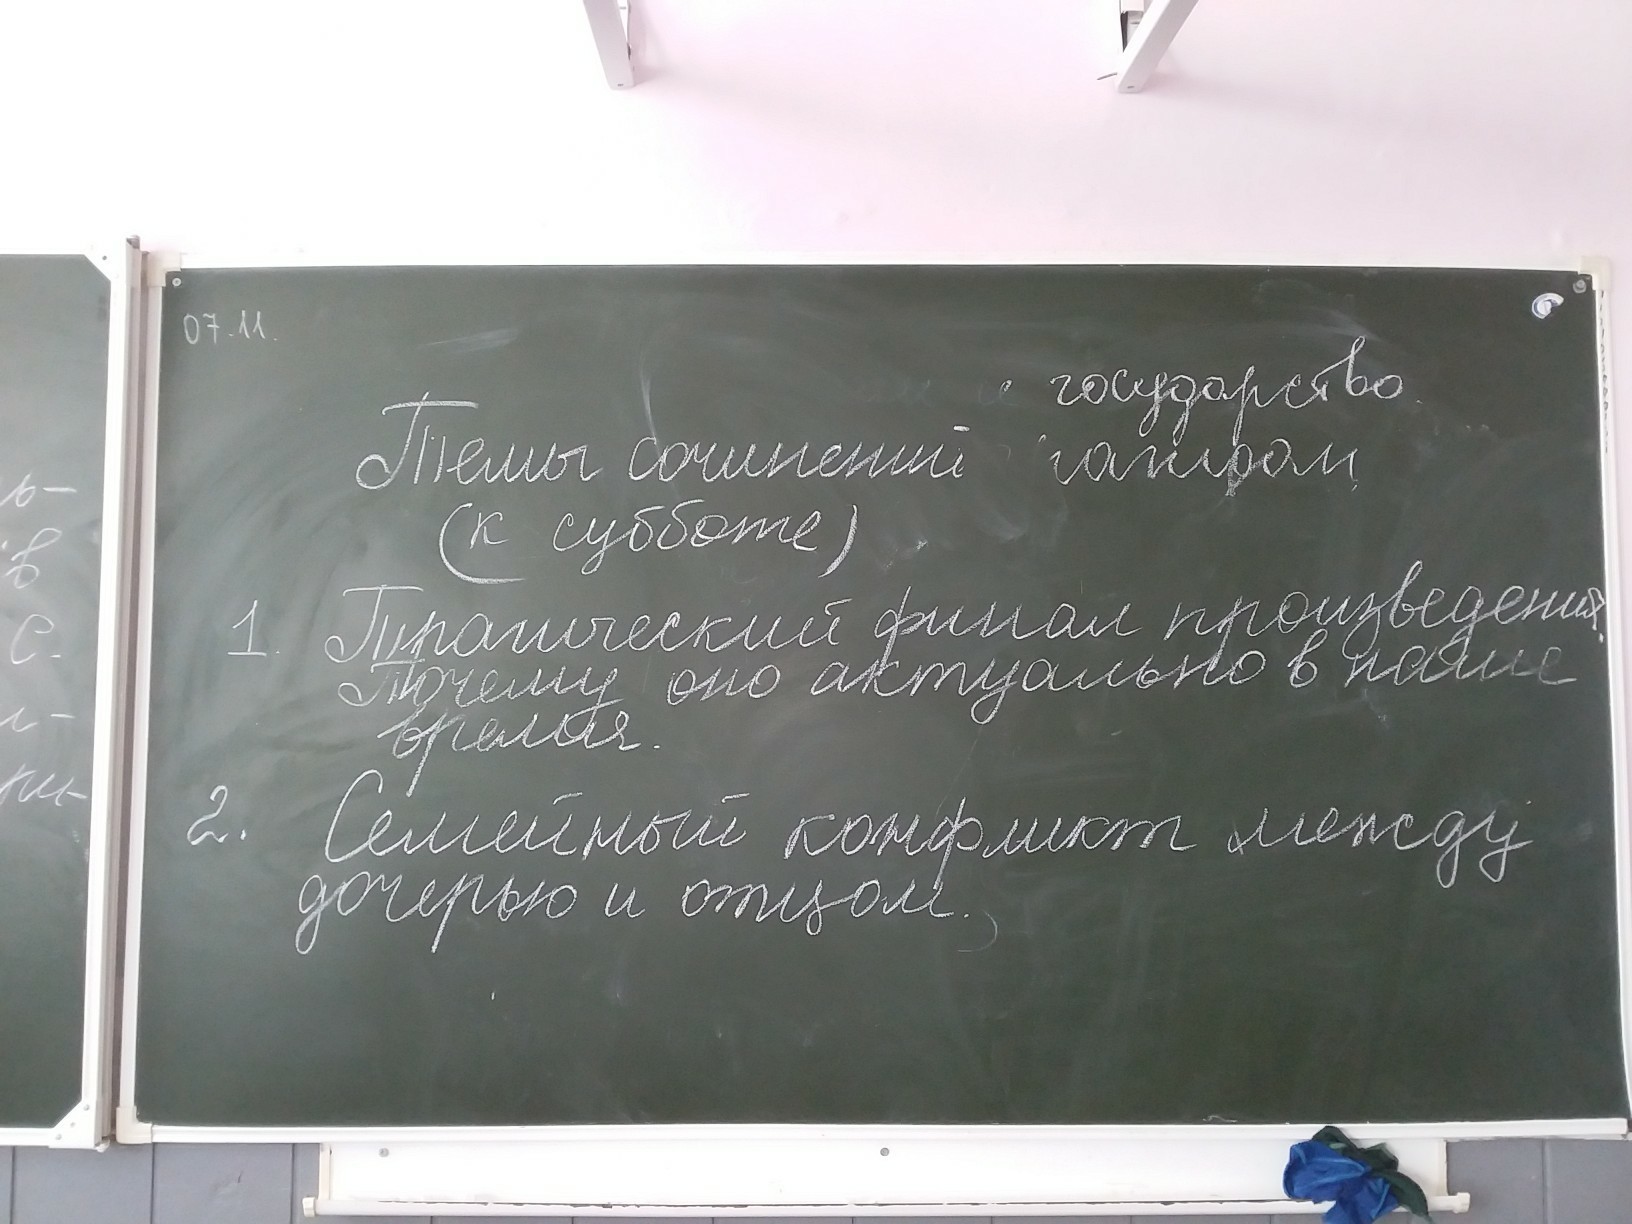 07.11.
государство
Темы сочинений
(к субботе)
1. Трагический финал произведений.
Почему оно актуально в наше
время.
2. Семейный конфликт между
дочерью и отцом.
ь-
в
С.